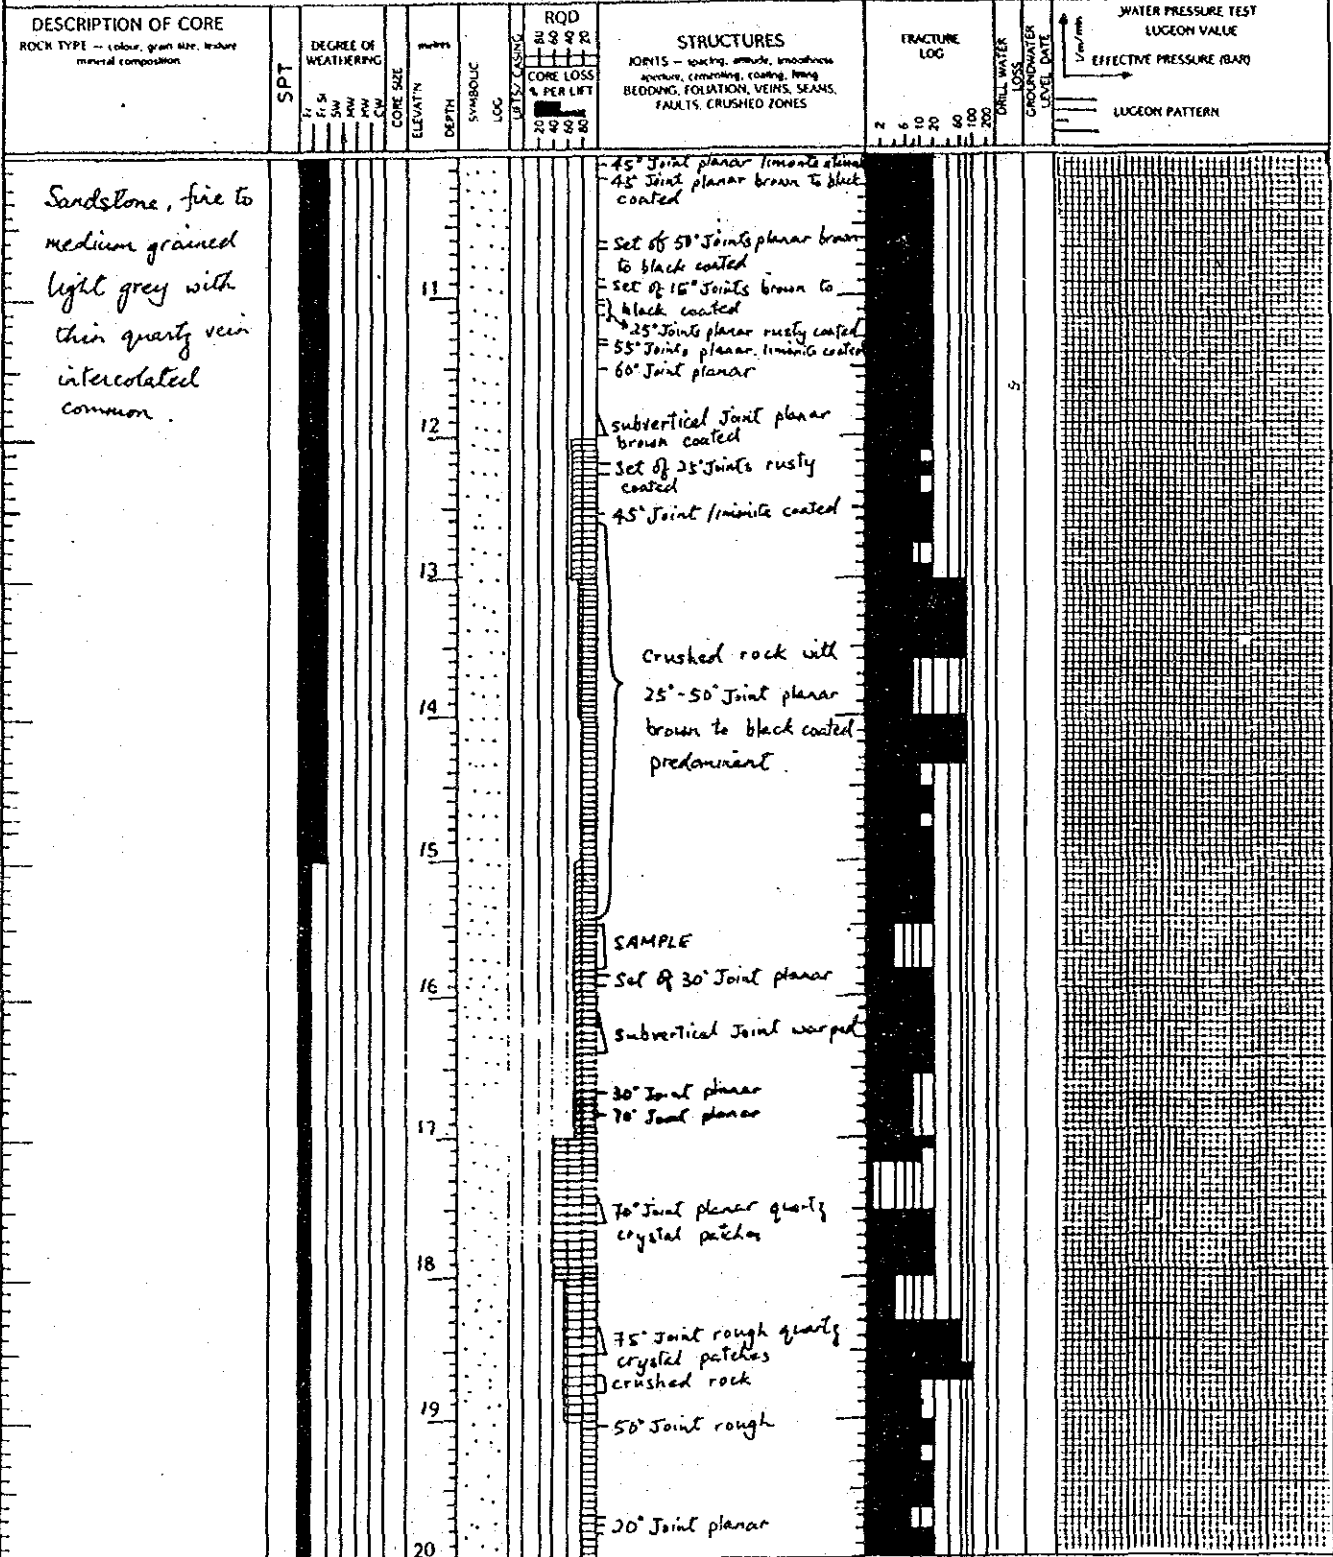 DESCRIPTION OF CORE
ROCK TYPE -- colour, grain size, texture
mineral composition
SPT
DEGREE OF
WEATHERING
Fr
Fr St
SW
MW
HW
CW
CORE SIZE
metres
ELEVAT'N
DEPTH
SYMBOLIC
LOG
LIFTS/ CASING
RQD
80 60 40 20
CORE LOSS
% PER LIFT
20 40 60 80
STRUCTURES
JOINTS -- spacing, attitude, smoothness
aperture, cementing, coating,
BEDDING, FOLIATION, VEINS, SEAMS,
FAULTS, CRUSHED ZONES
FRACTURE
LOG
2 6 10 20 60 100 200
DRILL WATER
LOSS
GROUNDWATER
LEVEL DATE
WATER PRESSURE TEST
LUGEON VALUE
EFFECTIVE PRESSURE (BAR)
LUGEON PATTERN
Sandstone, fine to
medium grained
light grey with
thin quartz vein
intercolated
common.
45° Joint planar limonite
45° Joint planar brown to black
coated
Set of 50° Joints planar brown
to black coated
Set of 15° Joints brown to
black coated
11
25° Joints planar rusty coated
55° Joints planar, limonite coated
60° Joint planar
12
subvertical Joint planar
brown coated
Set of 25° Joints rusty
coated
45° Joint limonite coated
13
Crushed rock with
25°-50° Joint planar
14
brown to black coated
predominant.
15
SAMPLE
Set of 30° Joint planar
16
subvertical Joint warped
30° Joint planar
70° Joint planar
17
70° Joint planar quartz
crystal patches
18
75° Joint rough quartz
crystal patches
crushed rock
19
50° Joint rough
20° Joint planar
20